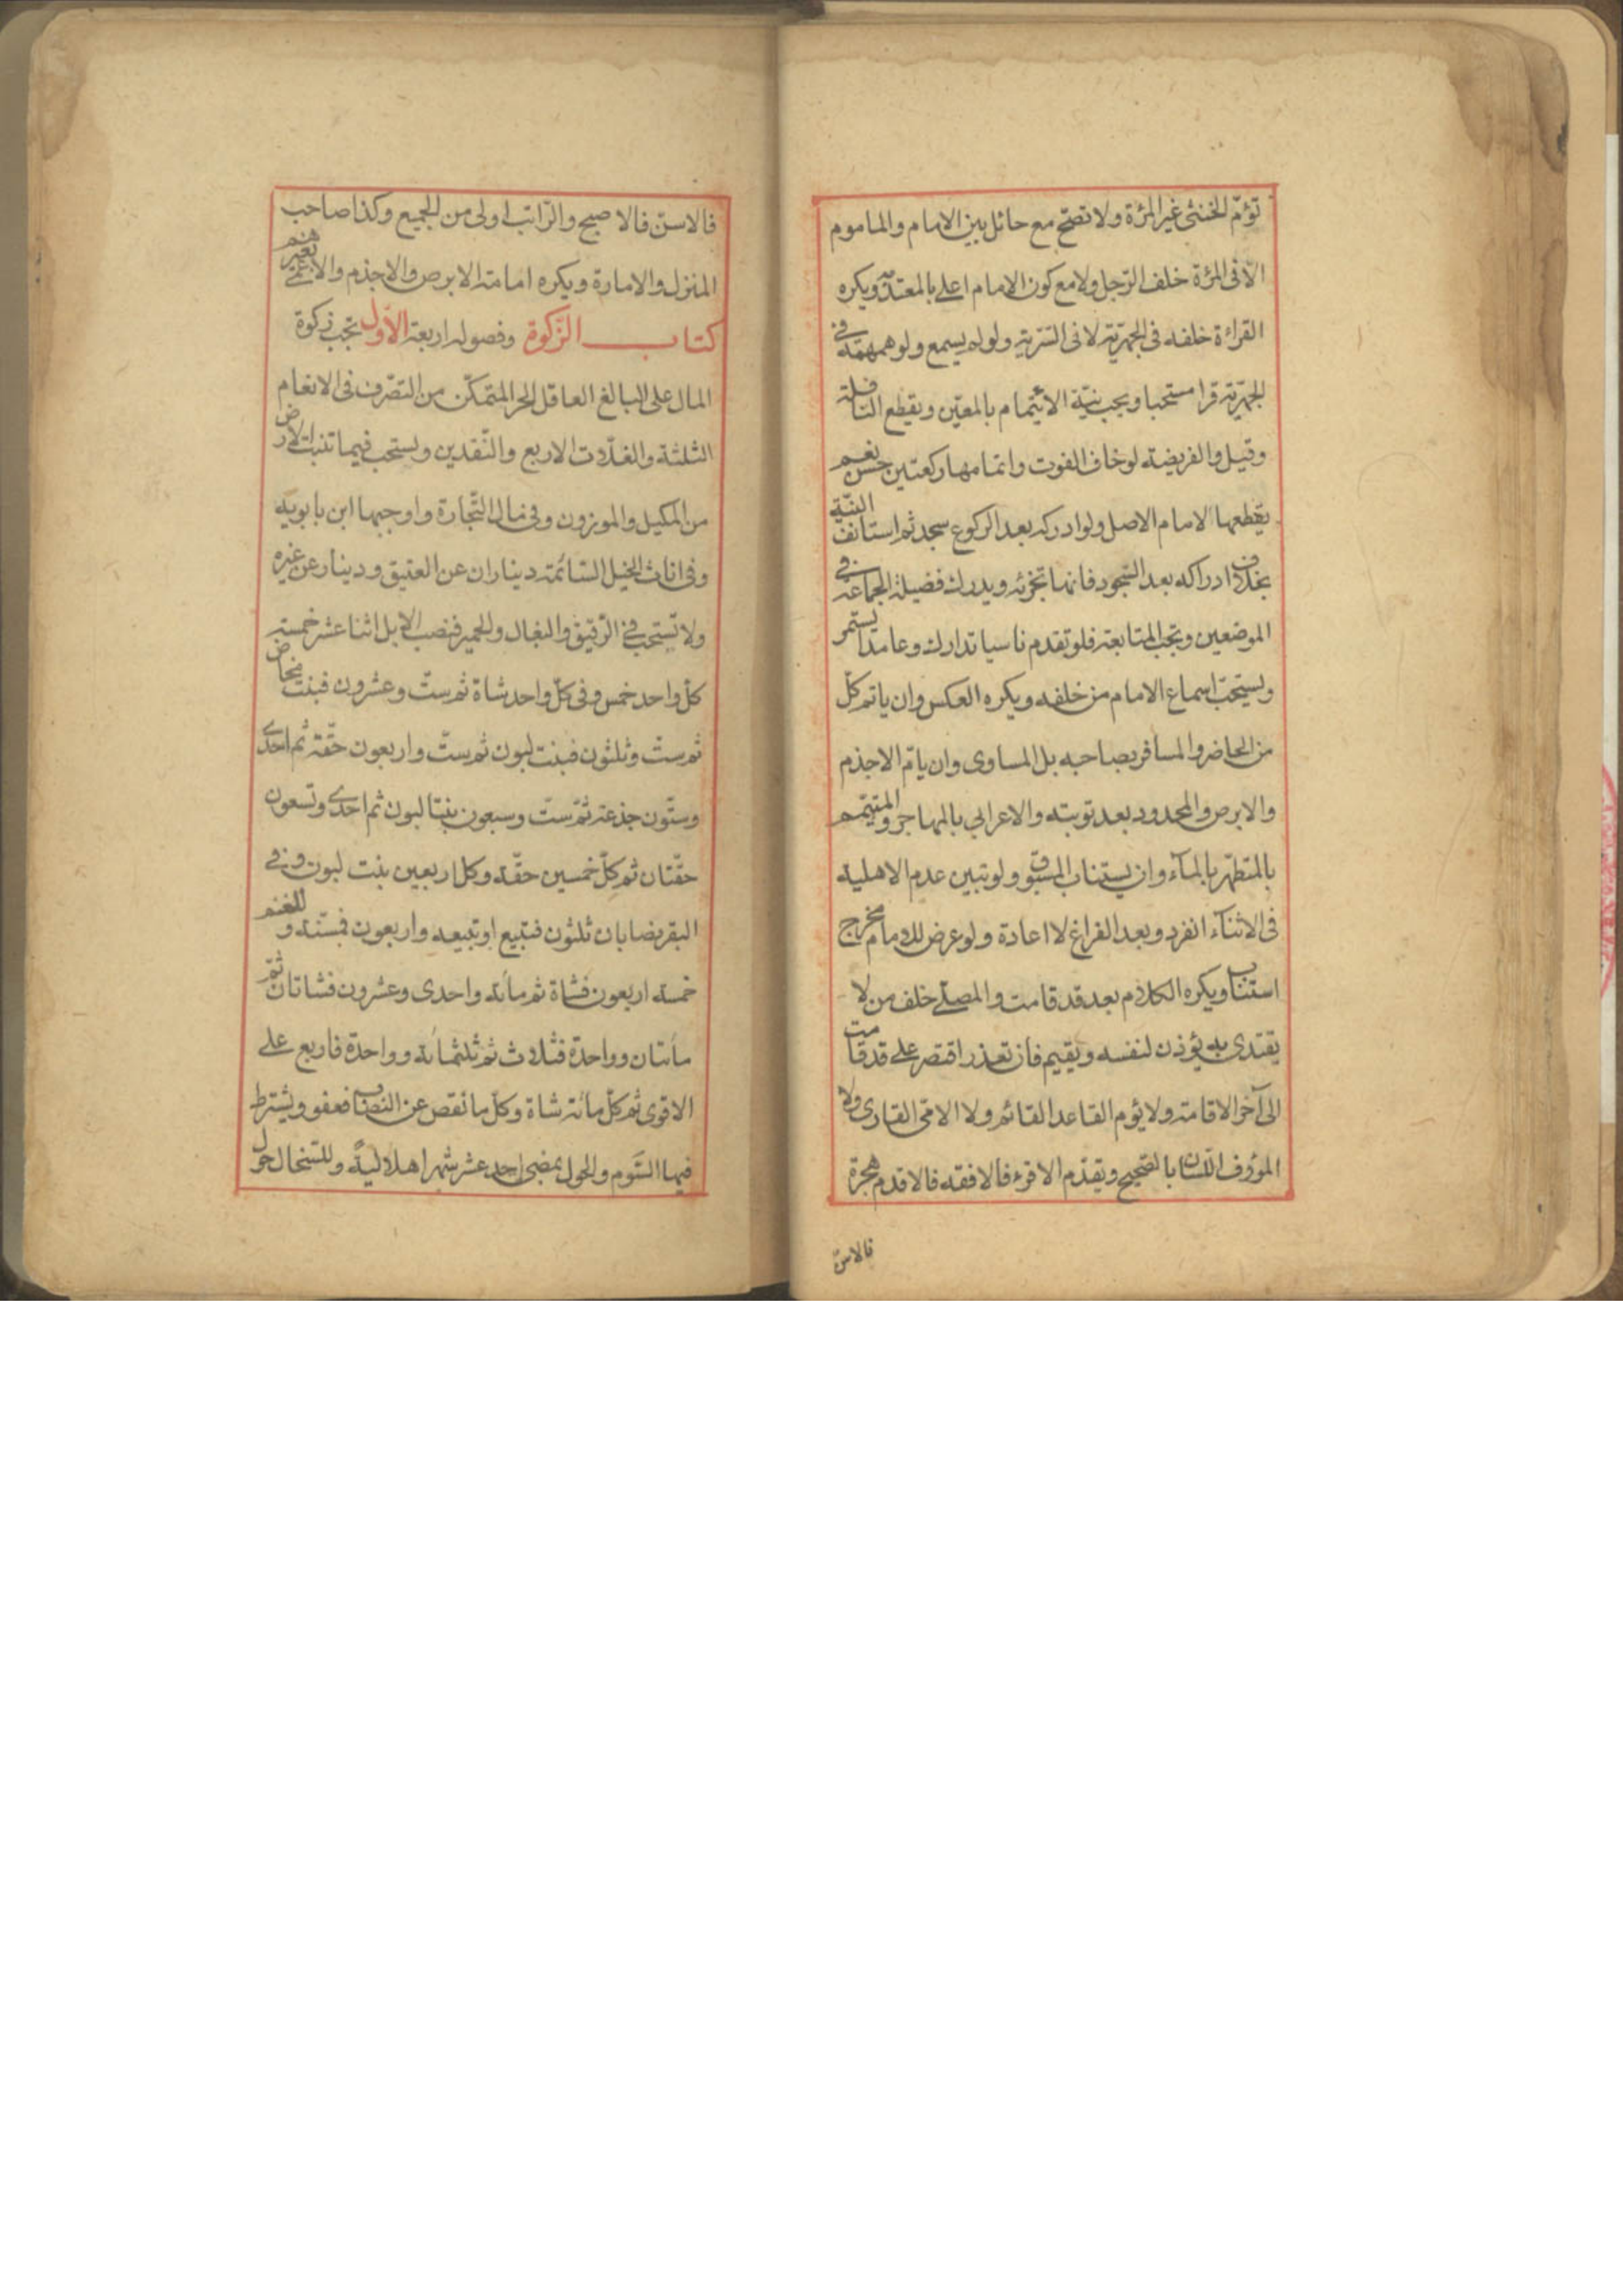 تؤمّ الخنثى غير المرئة ولا تصحّ مع حائل بين الامام والماموم
الّا فى المرئة خلف الرّجل ولا مع كون الامام اعلى بالمعتدّ به ويكره
القرائة خلفه فى الجهريّة لا فى السّرية ولو لم يسمع ولو همهمة فى
الجهريّة قرا مستحبا ويجب نيّة الايتمام بالمعيّن ويقطع النافلة
وقيل والفريضة لو خاف الفوت واتمامها ركعتين حسن نعم
يقطعها لامام الاصل ولو ادركه بعد الركوع سجد ثم استانف النيّة
بخلاف ادراكه بعد السّجود فانها تجزئه ويدرك فضيلة الجماعة فى
الموضعين وتجب المتابعة فلو تقدم ناسيا تدارك وعامدا يستمر
ويستحبّ اسماع الامام من خلفه ويكره العكس وان ياتم كلّ
من الحاضر والمسافر بصاحبه بل المساوى وان يامّ الاجذم
والابرص والمحدود بعد توبته والاعرابي بالمهاجر والمتيمّم
بالمتطهّر بالمآء وان يستناب المسبوق ولو تبين عدم الاهلية
فى الاثنآء انفرد وبعد الفراغ لا اعادة ولو عرض للامام مخرج
استناب ويكره الكلام بعد قد قامت والمصلّى خلف من لا
يقتدى به يؤذن لنفسه ويقيم فان تعذر اقتصر على قد قامت
الى آخر الاقامة ولا يؤم القاعد القائم ولا الامّى القارى ولا
المؤوف اللسان بالصّحيح ويقدّم الاقرء فالافقه فالاقدم هجرة
فالاسنّ
فالاسنّ فالاصبح والرّاتب اولى من الجميع وكذا صاحب
المنزل والامارة ويكره امامة الابرص والاجذم والاعمى بغيرهم
كتاب الزّكوة وفصوله اربعة الاوّل تجب زكوة
المال على البالغ العاقل الحر المتمكّن من التصّرف فى الانعام
الثلثة والغلّات الاربع والنّقدين ويستحب فيما تنبت الارض
من المكيل والموزون وفى مال التّجارة واوجبها ابن بابويه
وفى اناث الخيل السّائمة ديناران عن العتيق ودينار عن غيره
ولا تستحب فى الرّقيق والبغال والحمير فنصب الابل اثنا عشر خمسة
كلّ واحد خمس وفى كلّ واحد شاة ثم ستّ وعشرون فبنت مخاض
ثم ستّ وثلثون فبنت لبون ثم ستّ واربعون حقّة ثم احدى
وستّون جذعة ثمّ ستّ وسبعون بنتا لبون ثم احدى وتسعون
حقّتان ثم كلّ خمسين حقّة وكل اربعين بنت لبون وفى
البقر نصابان ثلثون فتبيع او تبيعه واربعون فمسّنة وللغنم
خمسة اربعون فشاة ثم مائة واحدى وعشرون فشاتان ثمّ
مأتان وواحدة فثلاث ثم ثلثمائة وواحدة فاربع على
الاقوى ثم كلّ مائة شاة وكلّ ما نقص عن النصاب فعفو ويشترط
فيها السّوم والحول بمضىّ احد عشر شهرا هلاليةً وللسّخال حول